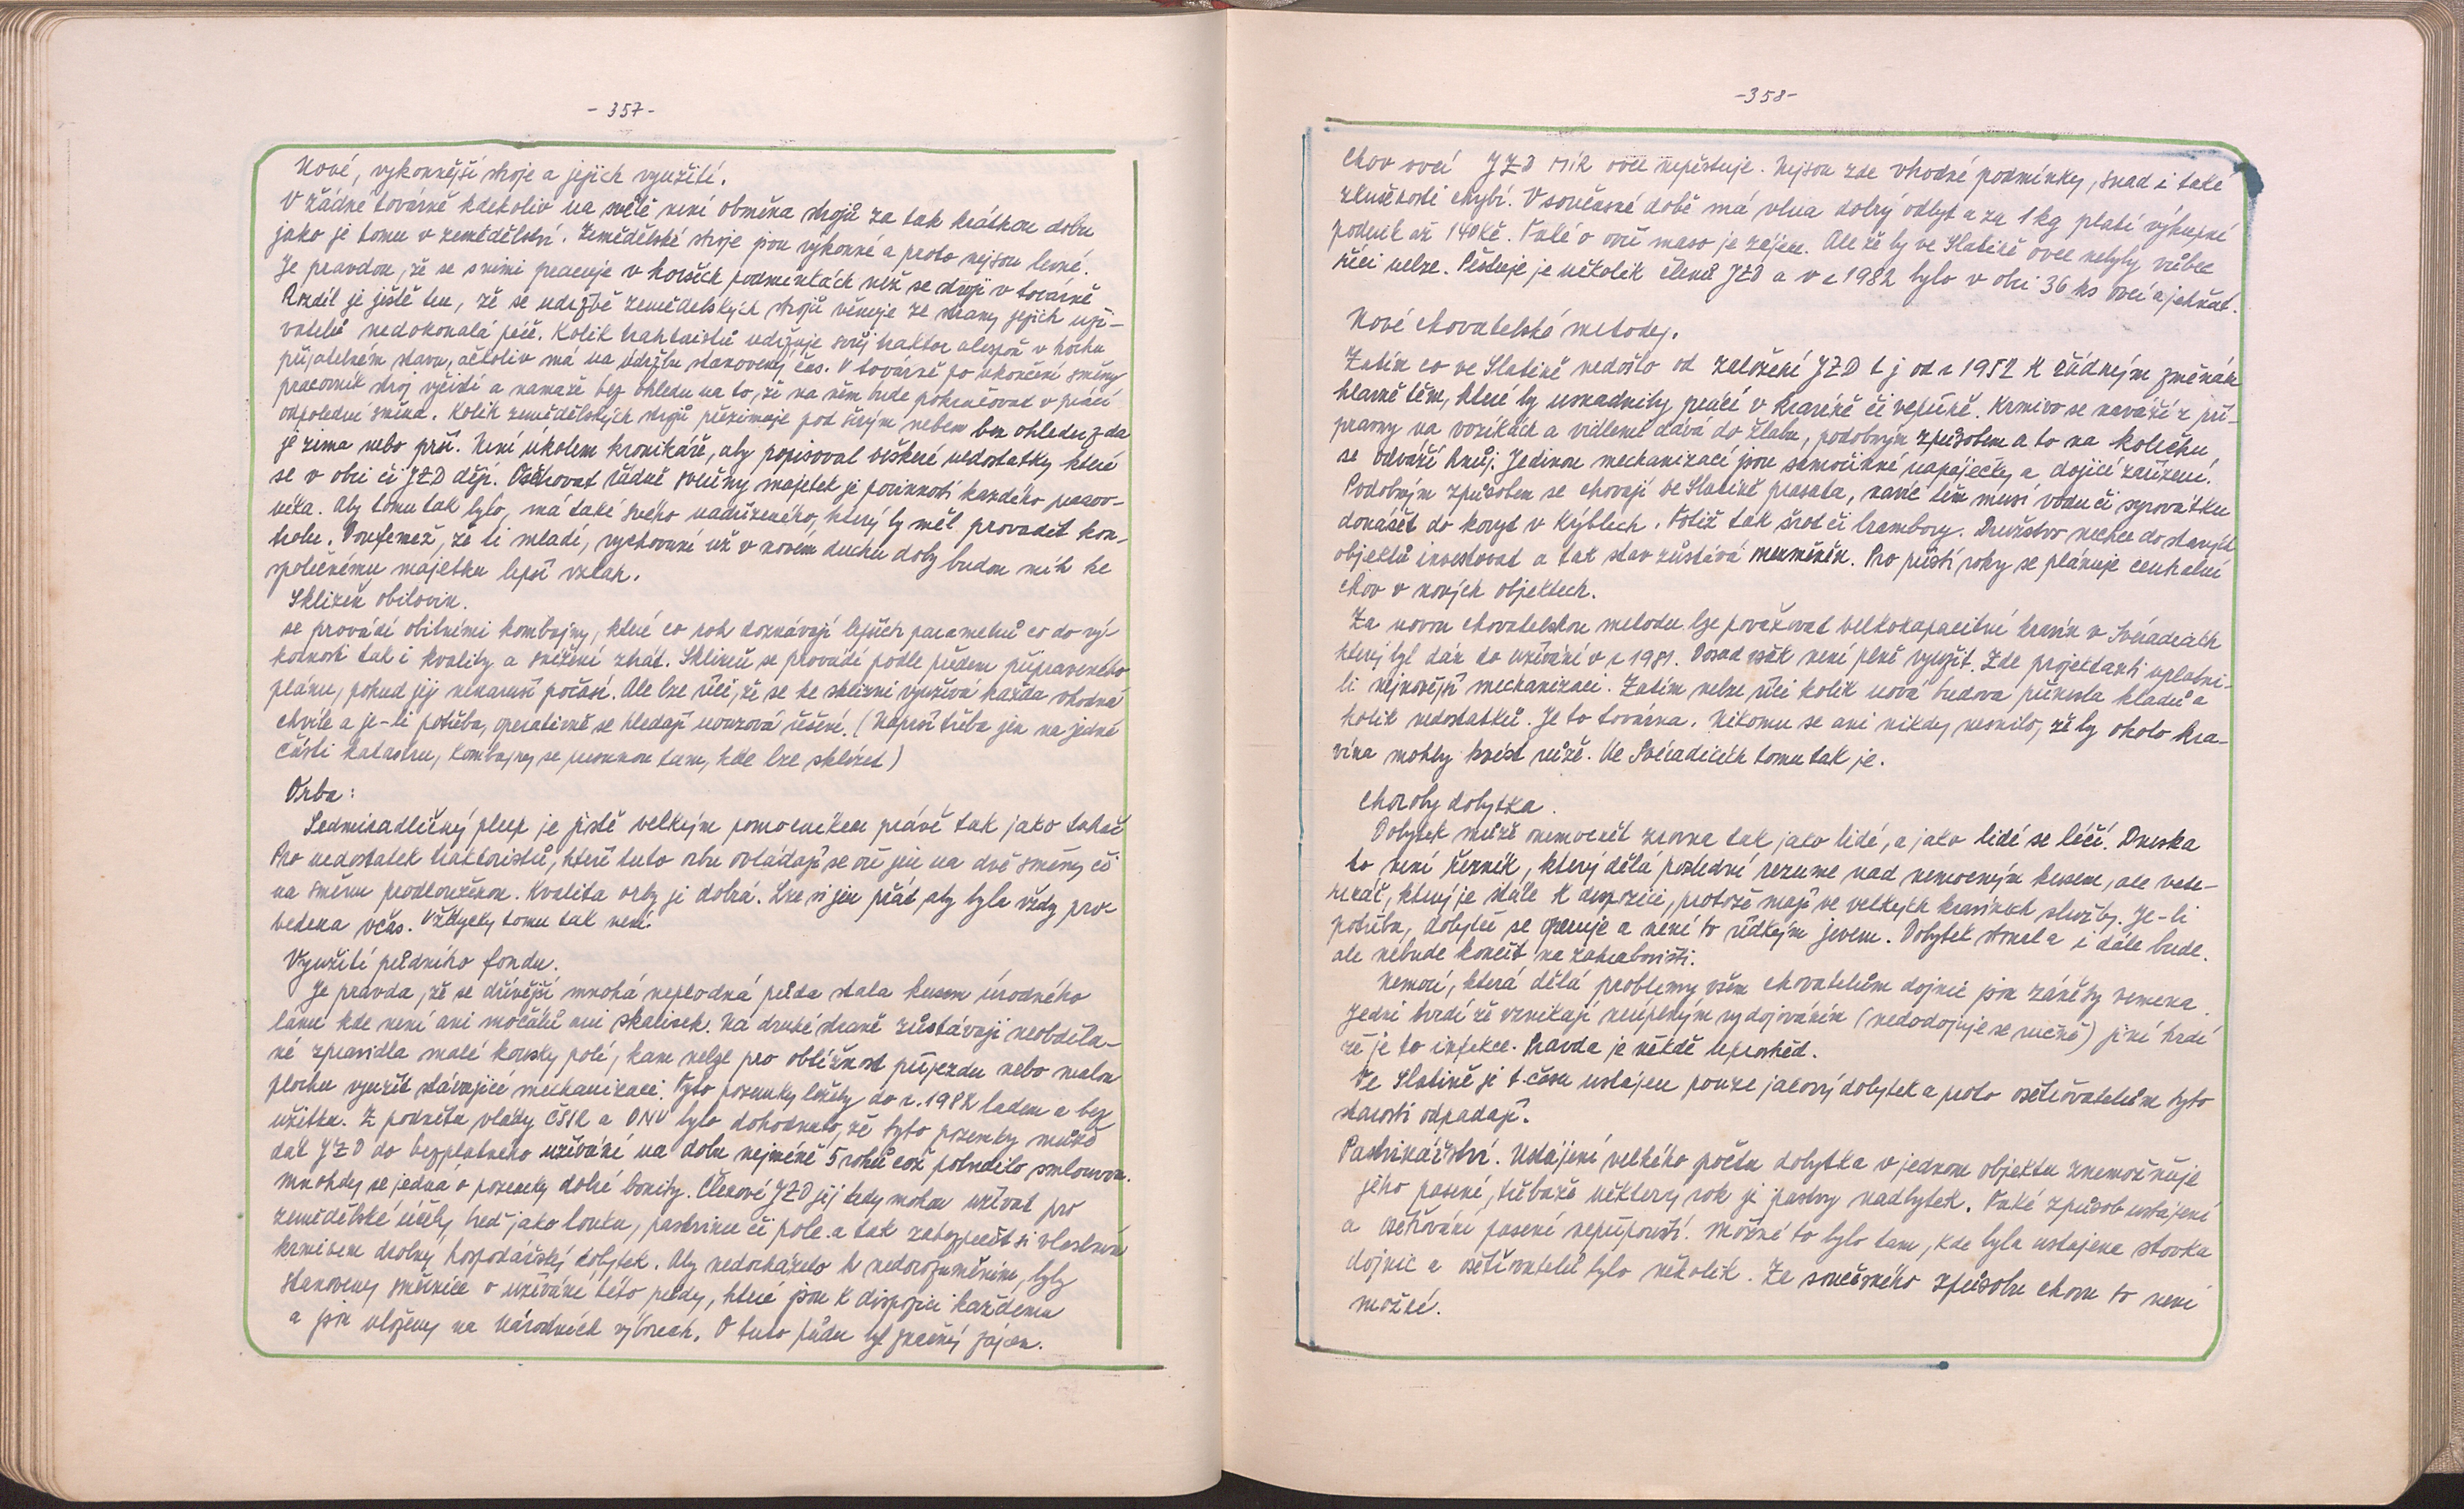 - 357 -
Nové, výkonnější stroje a jejich využití.
V žádné továrně kdekoliv na světě není obměna strojů za tak krátkou dobu
jako je tomu v zemědělství. Zemědělské stroje jsou výkonné a proto nejsou levné.
Je pravdou, že se s nimi pracuje v horších podmínkách než se stroji v továrně
Rozdíl je ještě ten, že se údržbě zemědělských strojů věnuje ze strany jejich uží-
vatelů nedokonalá péče. Kolik traktoristů udržuje svůj traktor alespoň v trochu
přijatelném stavu, ačkoliv má na údržbu stanovený čas. V továrně po ukončení směny
pracovník stroj vyčistí a namaže bez ohledu na to, že na něm bude pokračovat v práci
odpolední směna. Kolik zemědělských strojů přezimuje pod širým nebem bez ohledu zda
je zima nebo prší. Není úkolem kronikáře, aby popisoval veškeré nedostatky které
se v obci či JZD dějí. Ošetřovat řádně svěřený majetek je povinností každého pracov-
níka. Aby tomu tak bylo, má také svého nadřízeného, který by měl provádět kon-
trolu. Doufemež, že ti mladí, vychovaní už v novém duchu doby budou mít ke
společnému majetku lepší vztah.
Sklizeň obilovin.
se provádí obilními kombajny, které co rok doznávají lepších parametrů co do vý-
konnosti tak i kvality a snížení ztrát. Sklizeň se provádí podle předem připraveného
plánu, pokud jej nenaruší počasí. Ale lze říci, že se ke sklizni využívá každá vhodná
chvíle a je-li potřeba, operativně se hledají nouzová řešení. (Neprší třeba jen na jedné
části katastru, kombajny se přesunou tam, kde lze sklízet)
Orba:
Sedmiradličný pluh je jistě velkým pomocníkem právě tak jako tahač
Pro nedostatek traktoristů, kteří tuto orbu ovládají se oře jen na dvě směny či
na směnu prodlouženou. Kvalita orby je dobrá. Lze si jen přát, aby byla vždy pro-
vedena včas. Vždycky tomu tak není.
Využití půdního fondu.
Je pravda, že se dřívější mnohá neplodná půda stala kusem úrodného
lánu kde není ani močálů ani skalisek. Na druhé straně zůstávají neobděla-
né zpravidla malé kousky polí, kam nelze pro obtížnost příjezdu nebo malou
plochu využít stávající mechanizaci. Tyto pozemky ležely do r. 1982 ladem a bez
užitku. Z podnětu vlády ČSSR a ONV bylo dohodnuto, že tyto pozemky může
dát JZD do bezplatného užívání na dobu nejméně 5 roků což potvrdilo smlouvou.
Mnohdy se jedná o pozemky dobré bonity. Členové JZD jej tedy mohou užívat pro
zemědělské účely buď jako louku, pastvinu či pole a tak zabezpečit si vlastním
krmivem drobný hospodářský dobytek. Aby nedocházelo k nedorozuměním, byly
stanoveny směrnice o užívání této půdy, které jsou k dispozici každému
a jsou uloženy na Národních výborech. O tuto půdu byl značný zájem.
-358-
Chov ovcí JZD MÍR ovce nepěstuje. Nejsou zde vhodné podmínky, snad i také
zkušenosti chybí. V současné době má vlna dobrý odbyt a za 1 kg platí výkupní
podnik až 140 Kč. Také o ovčí maso je zájem. Ale že by ve Slatině ovce nebyly vůbec
říci nelze. Pěstuje je několik členů JZD a v r 1982 bylo v obci 36 ks ovcí a jehňat.
Nové chovatelské metody.
Zatím co ve Slatině nedošlo od založení JZD t j od r 1952 k žádným změnám
hlavně těm, které by usnadnily práci v kravíně či vepříně. Krmivo se naváží z pří-
pravny na vozíkách a vidlemi dává do žlabu, podobným způsobem a to na kolečku,
se odváží hnůj. Jedinou mechanizací jsou samočinné napáječky a dojící zařízení.
Podobným způsobem se chovají ve Slatině prasata, navíc těm musí vodu či syrovátku
donášet do koryt v kýblech. Totiž tak šrot či brambory. Družstvo nechce do starých
objektů investovat a tak stav zůstává nezměněn. Pro příští roky se plánuje centrální
chov v nových objektech.
Za novou chovatelskou metodu lze považovat velkokapacitní kravín v Svéradicích
který byl dán do užívání v r 1981. Dosud však není plně využit. Zde projektanti uplatni-
li nejnovější mechanizaci. Zatím nelze říci kolik nová budova přinesla kladů a
kolik nedostatků. Je to továrna. Nikomu se ani nikdy nesnilo, že by okolo kra-
vína mohly kvést růže. Ve Svéradicích tomu tak je.
Choroby dobytka.
Dobytek může onemocnět zrovna tak jako lidé, a jako lidé se léčí. Dneska
to není řezník, který dělá poslední resume nad nemocným kusem, ale vete-
rinář, který je stále k dispozici, protože mají ve velkých kravínech služby. Je-li
potřeba, dobytče se operuje a není to řídkým jevem. Dobytek stonal a i dále bude.
ale nebude končit na zahrabovišti.
Nemocí, která dělá problémy všem chovatelům dojnic jsou záněty vemena.
Jedni tvrdí že vznikají neúplným vydojováním (nedodojuje se ručně) jiní tvrdí
že je to infekce. Pravda je někde uprostřed.
Ve Slatině je t. času ustájen pouze jalový dobytek a proto ošetřovatelům tyto
starosti odpadají.
Pastvinářství. Ustájení velkého počtu dobytka v jednom objektu znemožňuje
jeho pasení, třebaže některý rok je pastvy nadbytek. Také způsob ustájení
a ošetřování pasení nepřipouští. Možné to bylo tam, kde byla ustájena stovka
dojnic a ošetřovatelů bylo několik. Ze současného způsobu chovu to není
možné.